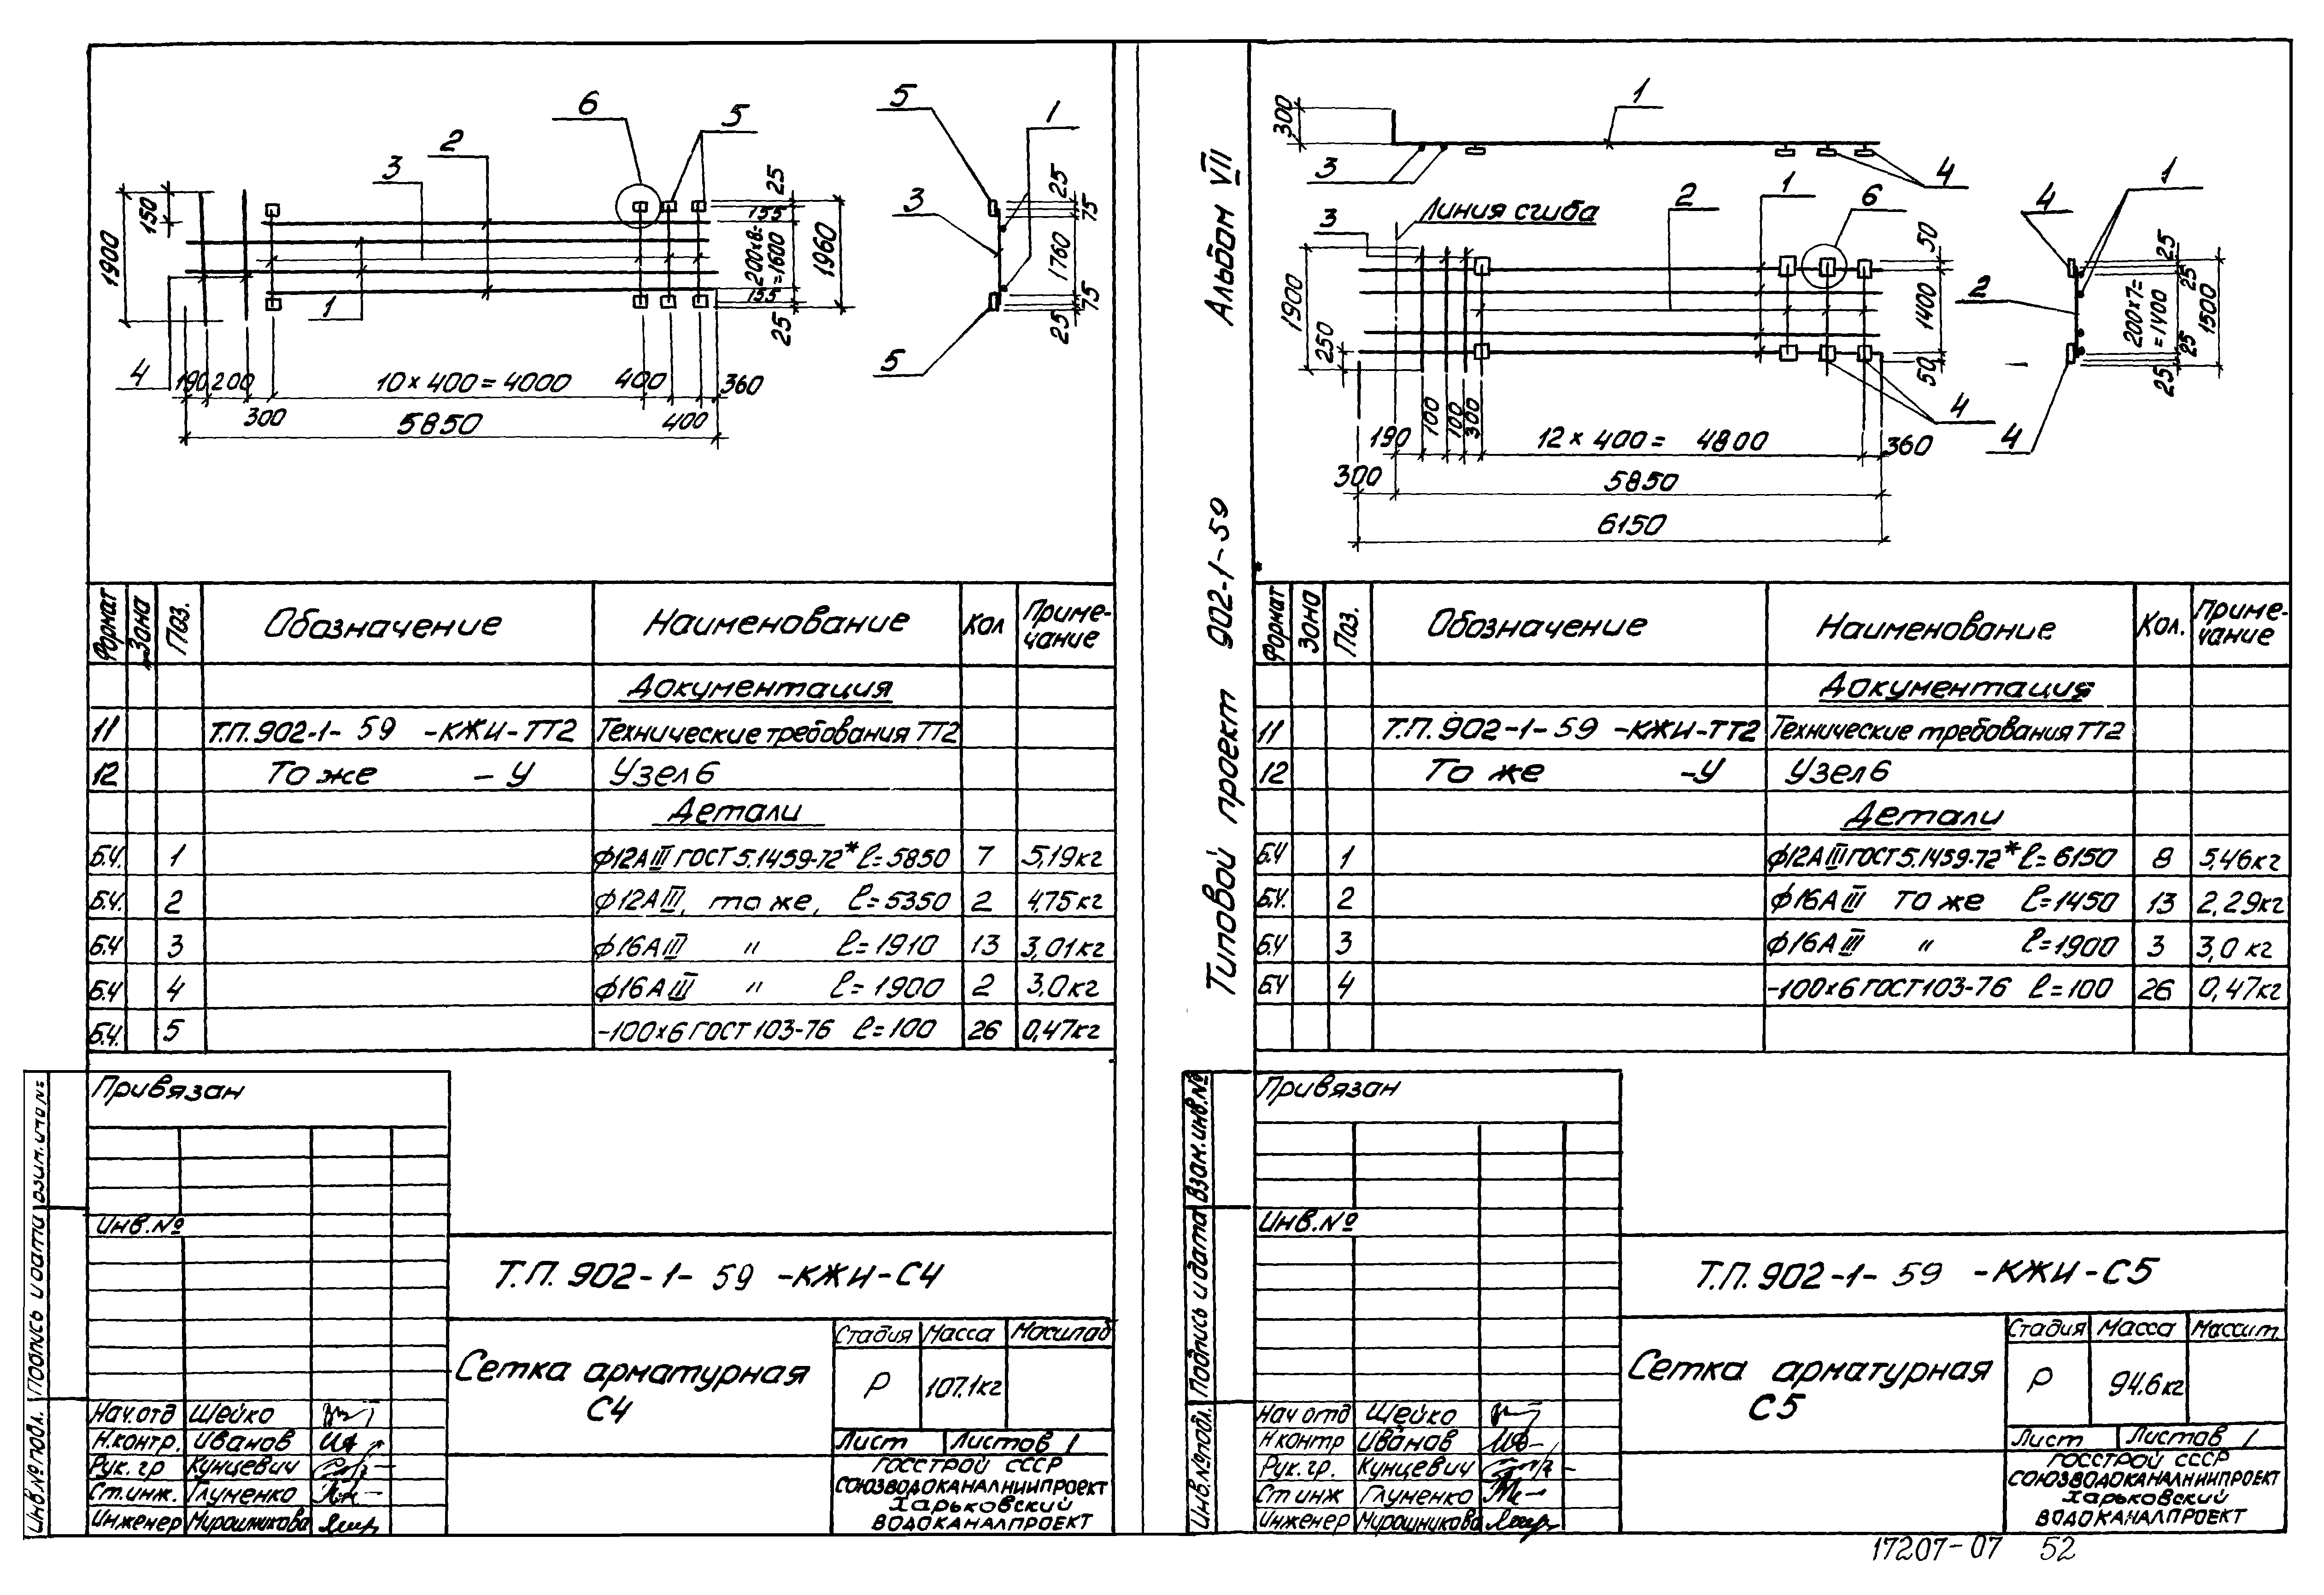 6
5
2
3
150
1900
25
155
200×8=
=1600
155
25
1960
1
4
190
200
10×400=4000
400
360
300
5850
400
5
1
3
25
75
1760
75
25
5
Формат
Зона
Поз.
Обозначение
Наименование
Кол
Приме-
чание
Документация
11 Т.П.902-1- 59 -КЖИ-ТТ2 Технические требования ТТ2
12 То же -У Узел 6
Детали
Б.Ч. 1 ф12АIII ГОСТ 5.1459-72* ℓ=5850 7 5,19кг
Б.Ч. 2 ф12АIII, то же, ℓ=5350 2 4,75кг
Б.Ч 3 ф16АIII " ℓ=1910 13 3,01кг
Б.Ч 4 ф16АIII " ℓ=1900 2 3,0кг
Б.Ч. 5 -100×6 ГОСТ 103-76 ℓ=100 26 0,47кг
Привязан
Инв.№
Т.П. 902-1- 59 -КЖИ-С4
Сетка арматурная
С4
Стадия Масса Масштаб
Р 107.1кг
Лист Листов 1
Нач.отд Шейко
Н.контр. Иванов
Рук. гр Кунцевич
Ст.инж. Глуменко
Инженер Мирошникова
ГОССТРОЙ СССР
СОЮЗВОДОКАНАЛНИИПРОЕКТ
Харьковский
ВОДОКАНАЛПРОЕКТ
Инв.№ подл.
Подпись и дата
Альбом VII
Типовой проект 902-1-59
300
1
3
4
Линия сгиба
2
1
6
3
1900
250
50
1400
50
100
100
300
190
12×400= 4800
360
300
5850
6150
4
4
1
2
25
25
200×7=
=1400
1500
25
25
4
Формат
Зона
Поз.
Обозначение
Наименование
Кол.
Приме-
чание
Документация
11 Т.П. 902-1-59 -КЖИ-ТТ2 Технические требования ТТ2
12 То же -У Узел 6
Детали
Б.Ч 1 ф12АIII ГОСТ 5.1459-72* ℓ=6150 8 5,46кг
Б.Ч. 2 ф16АIII то же ℓ=1450 13 2,29кг
Б.Ч 3 ф16АIII " ℓ=1900 3 3,0 кг
Б.Ч 4 -100×6 ГОСТ 103-76 ℓ=100 26 0,47кг
Привязан
Инв.№
Т.П. 902-1- 59 -КЖИ-С5
Сетка арматурная
С5
Стадия Масса Массит
Р 94.6кг
Лист Листов 1
Нач отд Шейко
Н контр Иванов
Рук. гр. Кунцевич
Ст инж Глуменко
Инженер Мирошникова
ГОССТРОЙ СССР
СОЮЗВОДОКАНАЛНИИПРОЕКТ
Харьковский
ВОДОКАНАЛПРОЕКТ
Инв.№ подл.
Подпись и дата
Взам.инв.№
17207-07 52